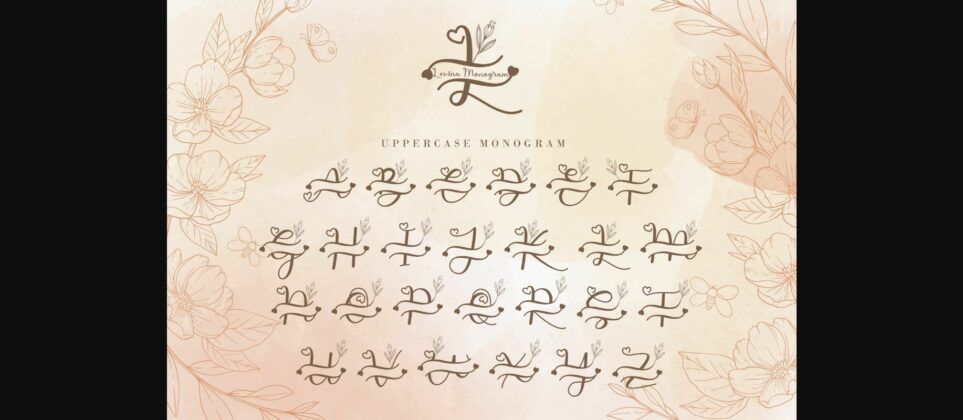 L
Levina Monogram
UPPERCASE MONOGRAM
A B C D E F
G H I J K L M
N O P Q R S T
U V W X Y Z